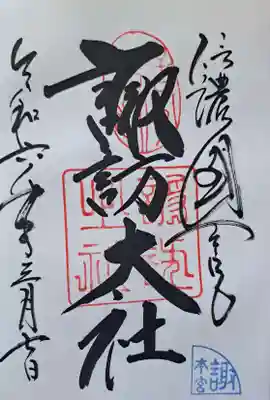 信濃國一之宮
諏訪大社
令和六年三月七日
本宮